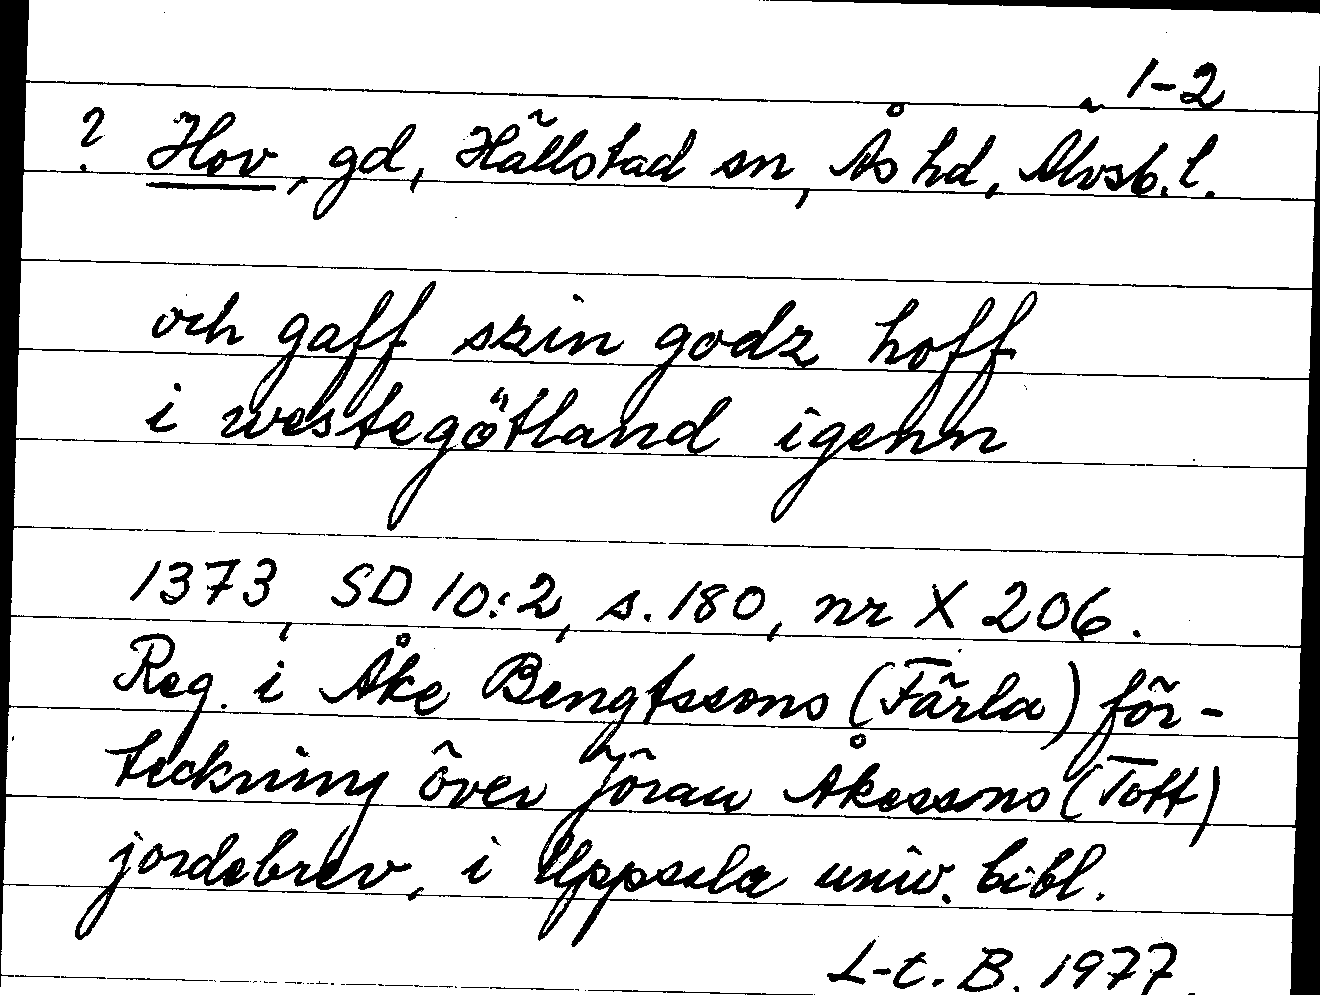 1-2
? Hov, gd, Hällstad sn, Ås hd, Älvsb. l.
och gaff szin godz hoff
i westegötland igenn
1373, SD 10:2, s. 180, nr X 206.
Reg. i Åke Bengtssons (Färla) för-
teckning över Jöran Åkessons (Tott)
jordebrev, i Uppsala univ. bibl.
L-t. B. 1977.